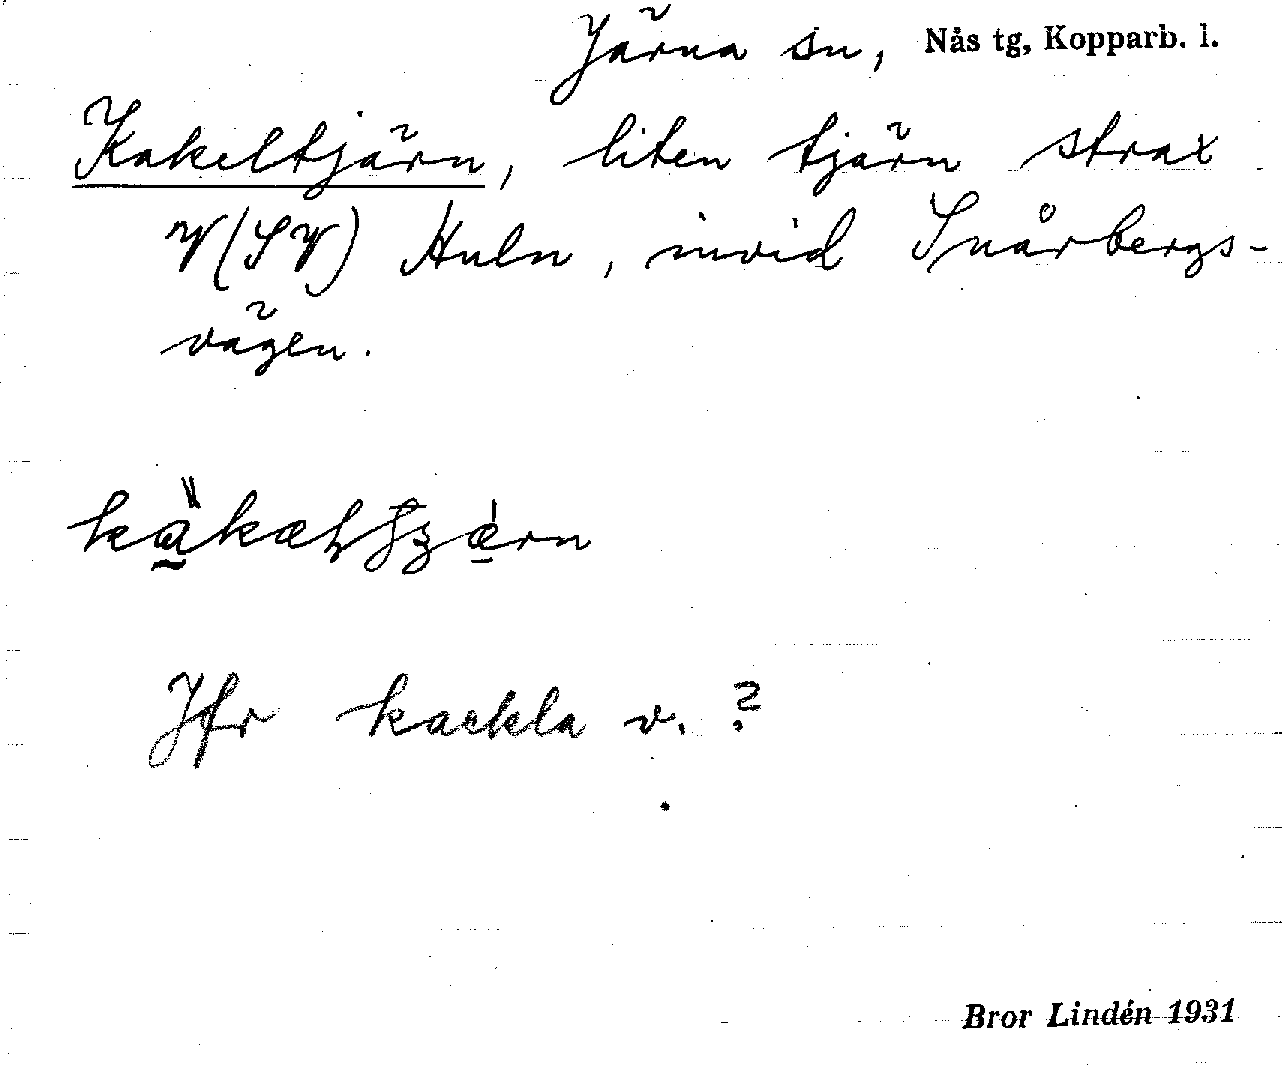 Järna sn, Nås tg, Kopparb. l.
Kakeltjärn, liten tjärn strax
V(SV) Huln, invid Snårbergs-
vägen.
Jfr kackla v. ?
Bror Lindén 1931